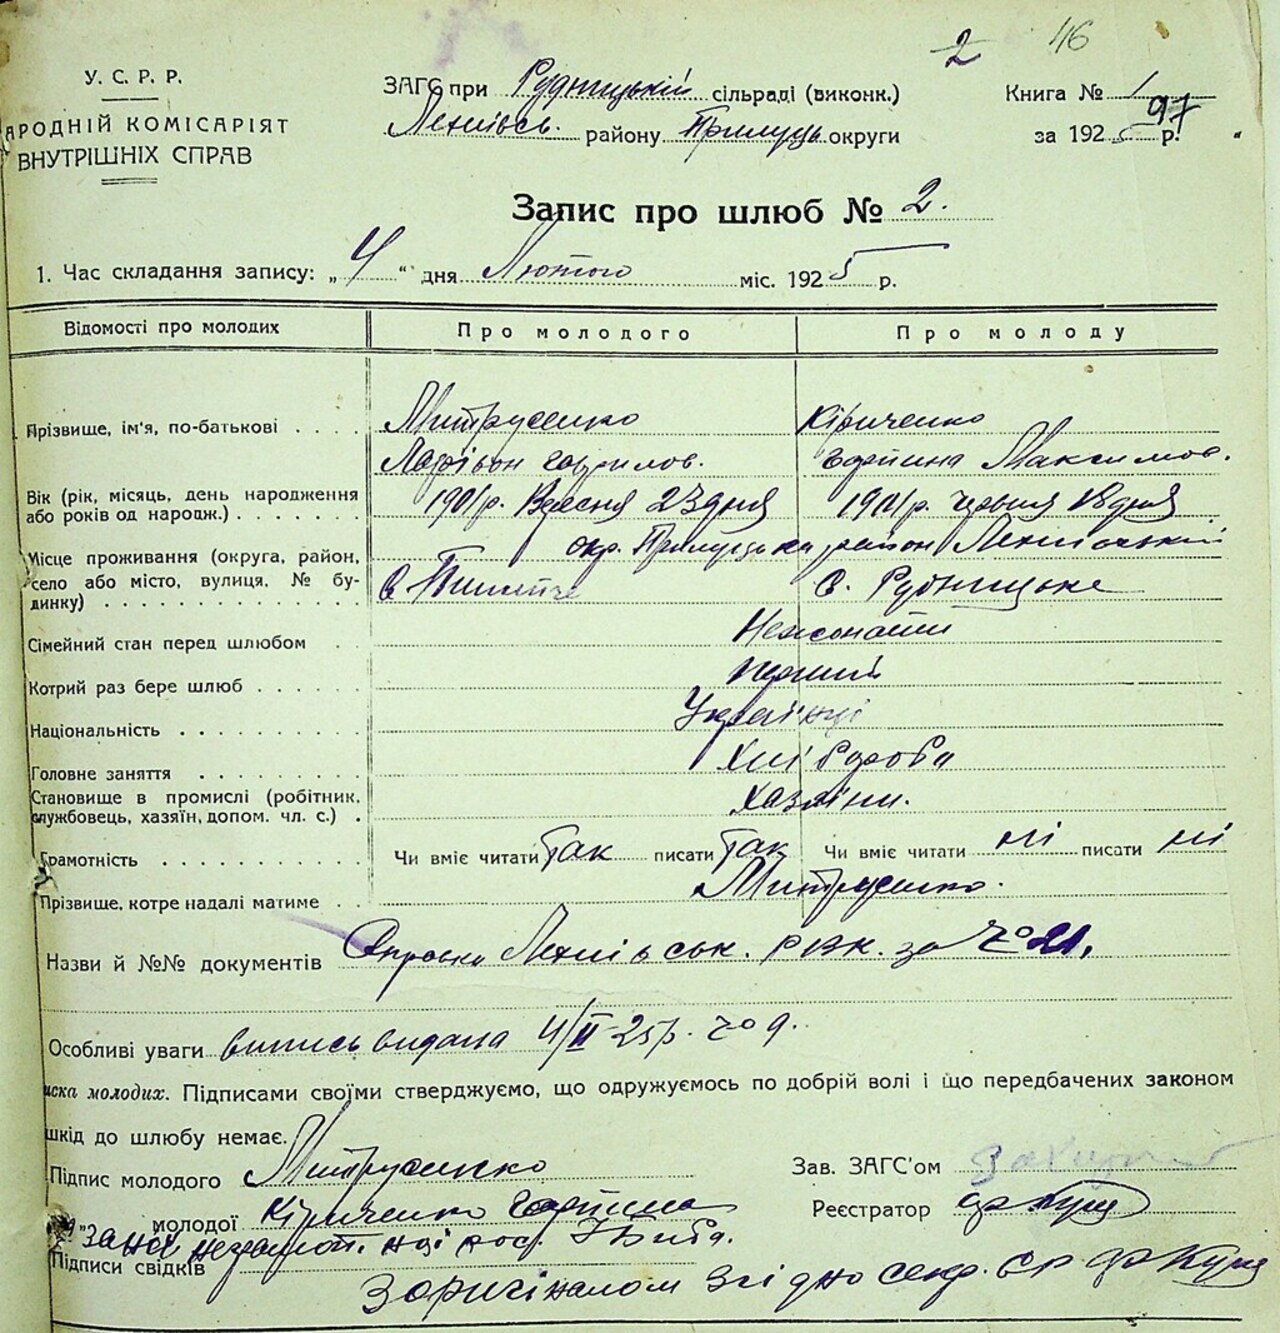 2 46
У. С. Р. Р.
НАРОДНІЙ КОМІСАРІЯТ
ВНУТРІШНІХ СПРАВ
ЗАГС при Рудницькій сільраді (виконк.)
району Прилуць округи
Книга № 1
97
за 1925 р.
Запис про шлюб № 2.
1. Час складання запису: „4“ дня Лютого міс. 1925 р.
Відомості про молодих Про молодого Про молоду
Прізвище, ім'я, по-батькові Митрусенко Кіриченко
Ларівон Гаврилов. Горпина Максимов.
Вік (рік, місяць, день народження або років од народж.) 1901 р. Вересня 23 дня 1901 р. Червня 18 дня
Місце проживання (округа, район, село або місто, вулиця, № будинку) окр. Прилуцька район
с. с. Рудницьке
Сімейний стан перед шлюбом Нежонаті
Котрий раз бере шлюб перший
Національність Українці
Головне заняття Хліборобв
Становище в промислі (робітник, службовець, хазяїн, допом. чл. с.) Хазяїни.
Грамотність Чи вміє читати так писати так Чи вміє читати ні писати ні
Прізвище, котре надалі матиме Митрусенко.
Назви й №№ документів Справки за № 21.
Особливі уваги випись видана 4/II-25 р. № 9.
иска молодих. Підписами своїми стверджуємо, що одружуємось по добрій волі і що передбачених законом
шкід до шлюбу немає.
Підпис молодого Митрусенко
Зав. ЗАГС'ом
„ молодої Кіриченко Горпина
Реєстратор
за неї неграмот.
Підписи свідків
З оригіналом згідно секр.